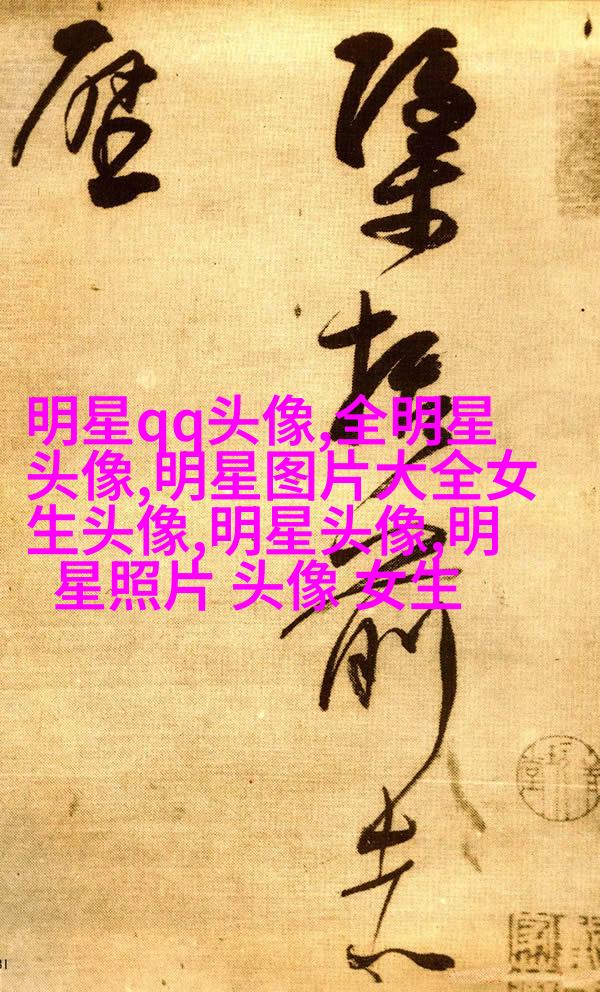 明星qq头像,全明星
头像,明星图片大全女
生头像,明星头像,明
星照片 头像 女生
前